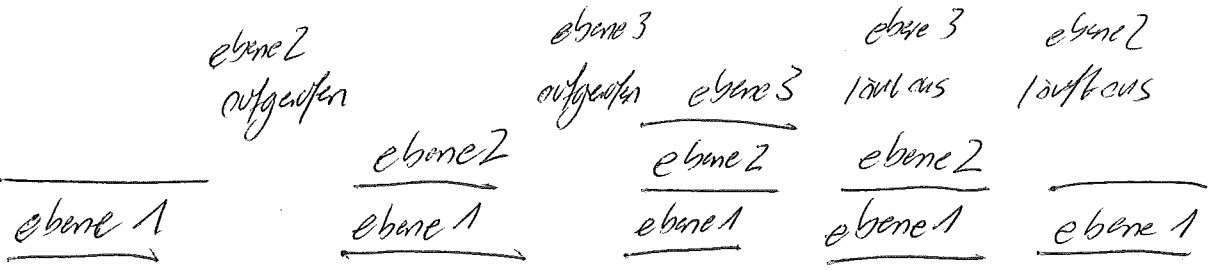 ebene 2
aufgerufen
ebene 3
aufgerufen
ebene 3
läuft aus
ebene 2
läuft aus
ebene 3
ebene 2
ebene 2
ebene 2
ebene 1
ebene 1
ebene 1
ebene 1
ebene 1